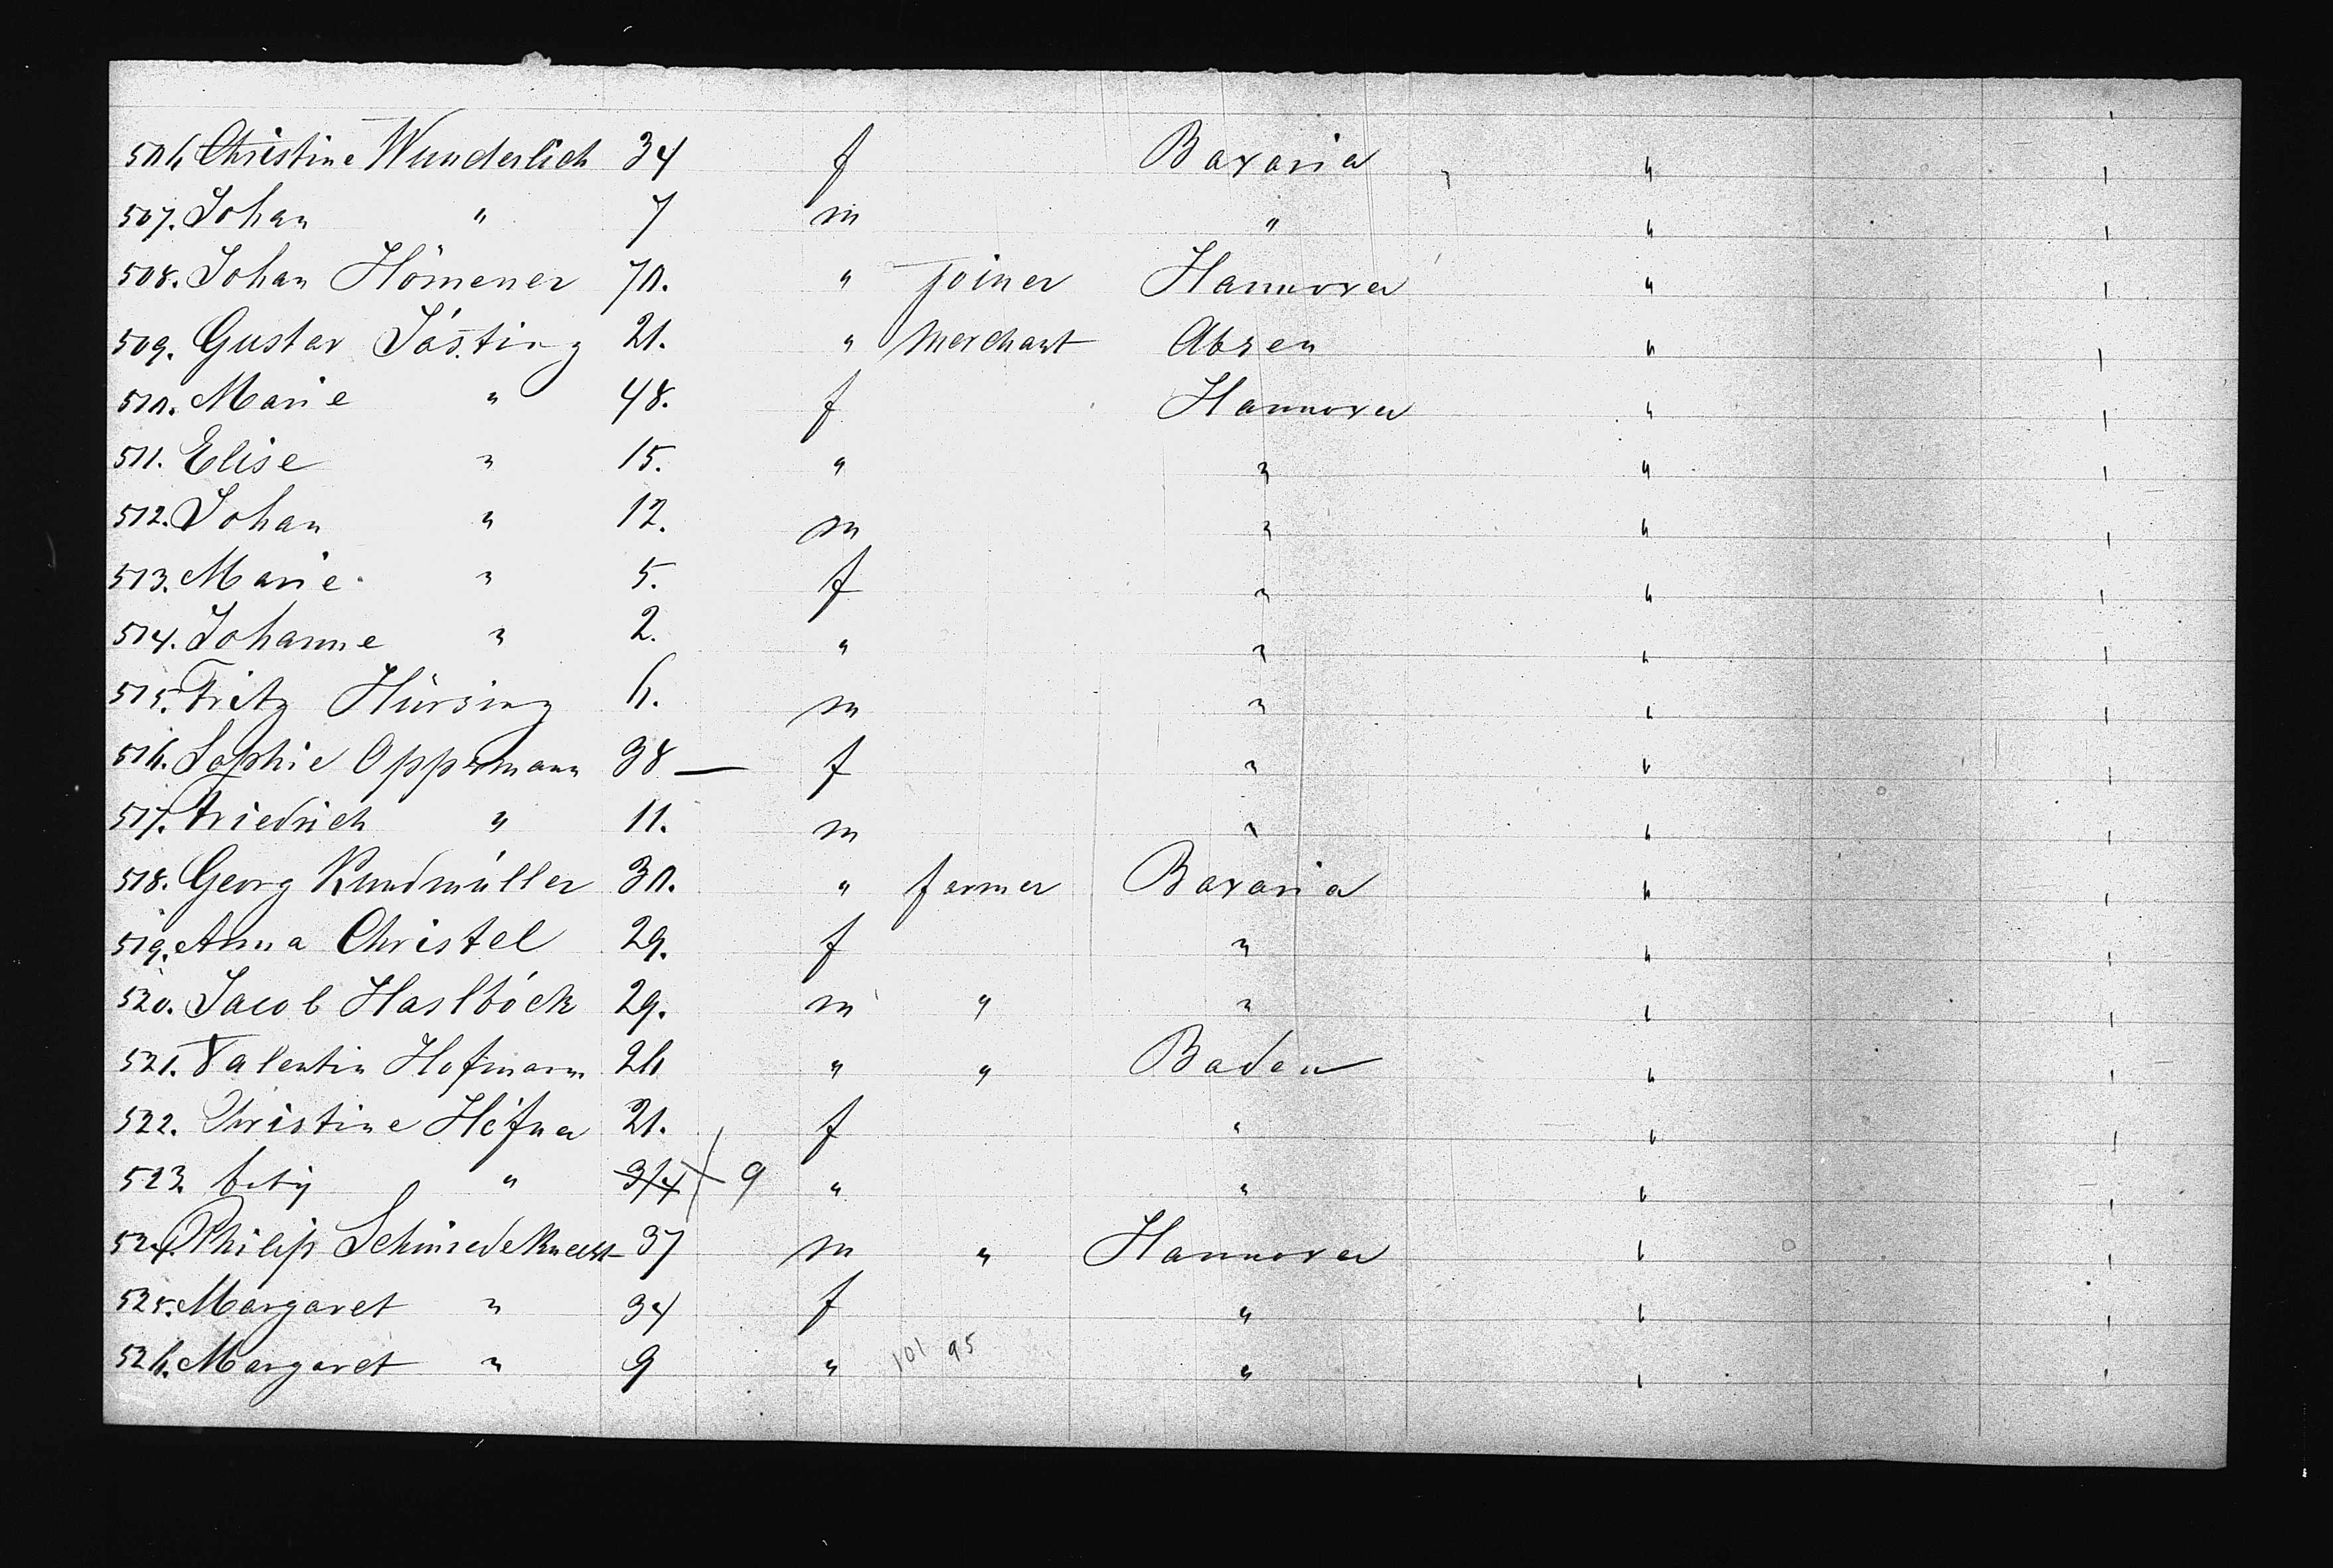 506. Christine Wunderlich 34 f Bavaria " '
507. Johan " 7 m " " '
508. Johan Hömener 70. " Joiner Hannover " '
509. Gustav Jösting 21. " Merchant Absen " '
510. Marie " 48. f Hannover " '
511. Elise " 15. " " " '
512. Johan " 12. m " " '
513. Marie " 5. f " " '
514. Johanne " 2. " " " '
515. Fritz Hürsing 6. m " " '
516. Sophie Oppermann 38 — f " " '
517. Friedrich " 11. m " " '
518. Georg Rundmüller 30. " farmer Bavaria " '
519. Anna Christel 29. f " " '
520. Jacob Haslböck 29. m " " " '
521. Valentin Hofmann 26 " " Baden " '
522. Christine Höfner 21. f " " '
523. " 3/4 9 " " " '
524. Philip Schmiedeknecht 37 m " Hannover " '
525. Margaret " 34 f " " '
526. Margaret " 9 " 101 95 " " '